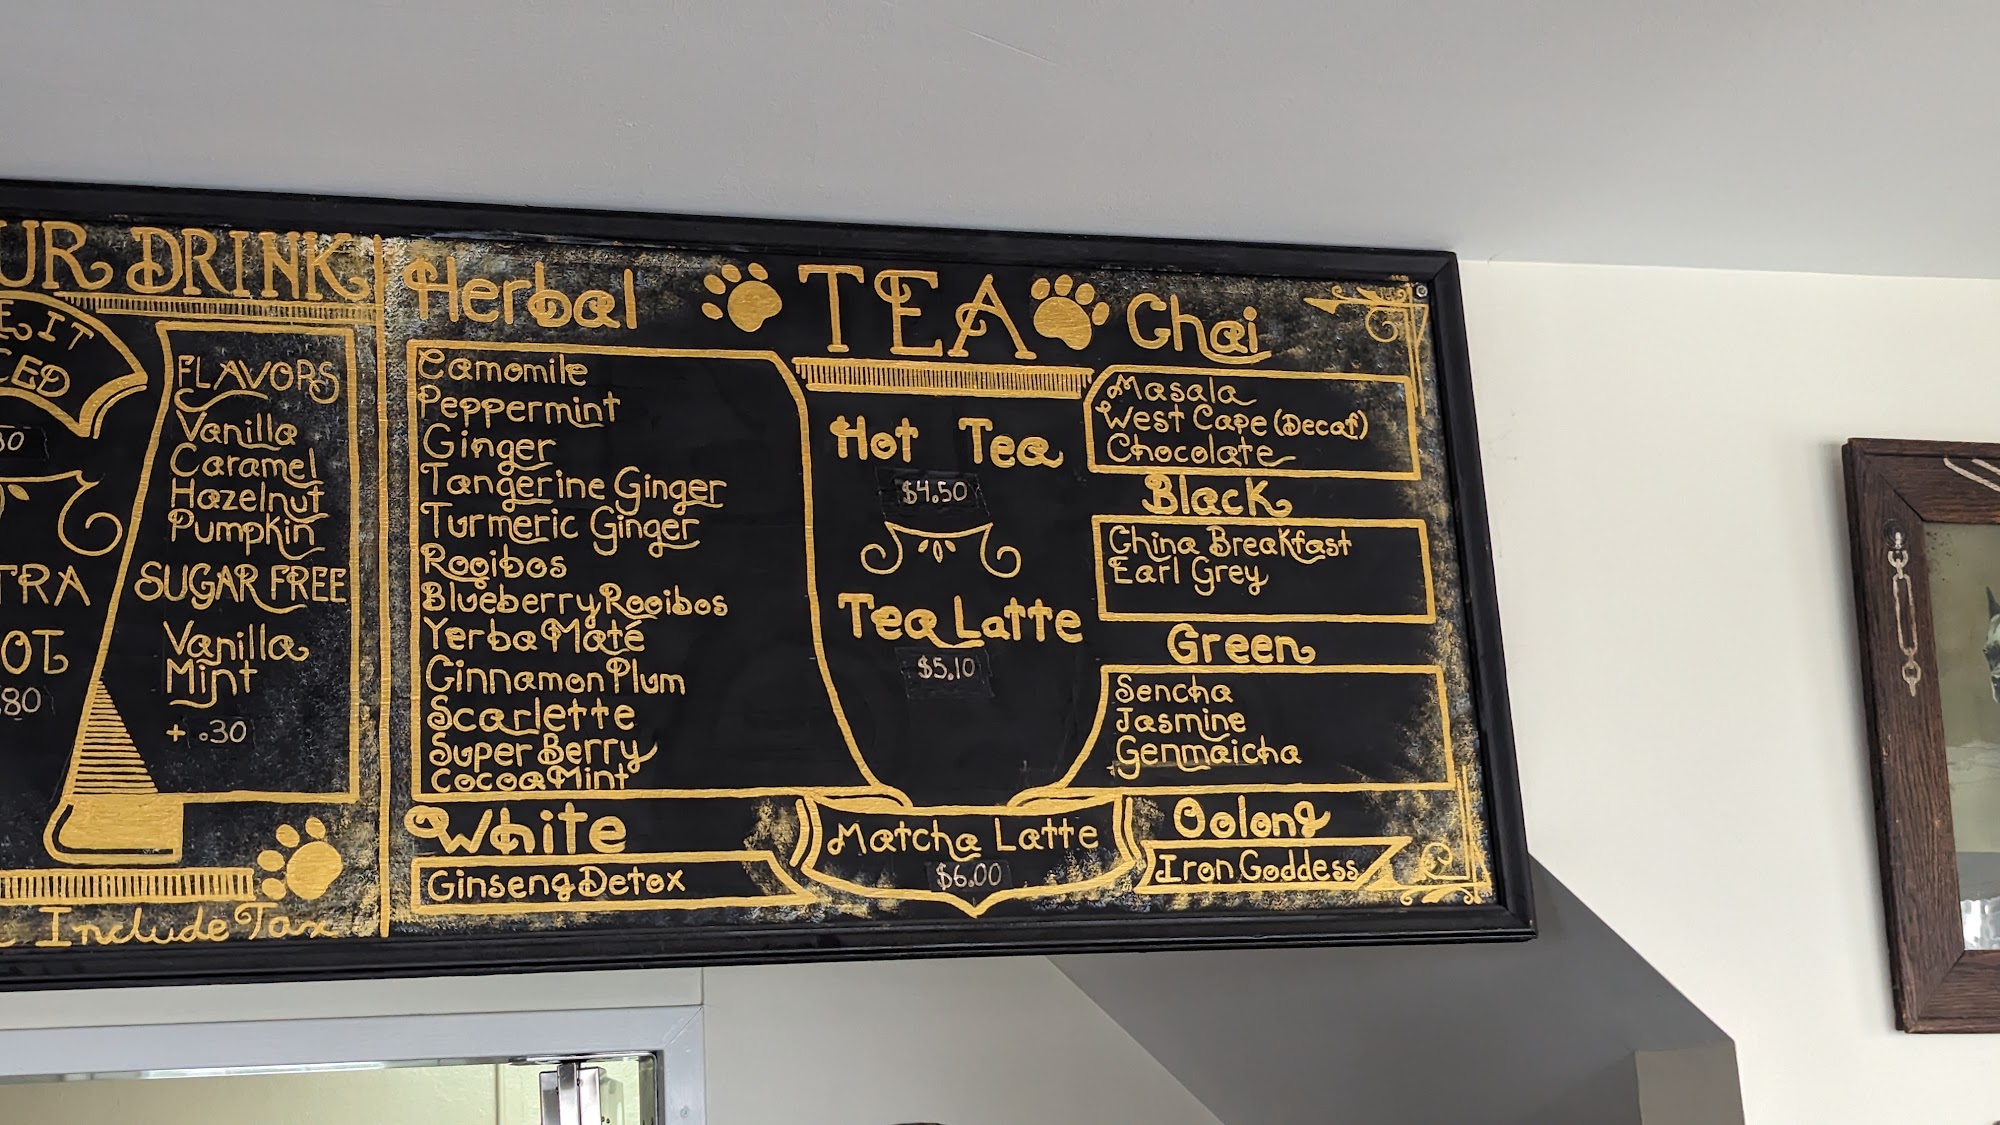 DRINK
FLAVORS
Vanilla
Caramel
Hazelnut
Pumpkin
SUGAR FREE
Vanilla
Mint
+ .30
Include Tax
TEA
Herbal
Camomile
Peppermint
Ginger
Tangerine Ginger
Turmeric Ginger
Rooibos
Blueberry Rooibos
Yerba Maté
Cinnamon Plum
Scarlette
Super Berry
Cocoa Mint
White
Ginseng Detox
Hot Tea
$4.50
Tea Latte
$5.10
Matcha Latte
$6.00
Chai
Masala
West Cape (Decaf)
Chocolate
Black
China Breakfast
Earl Grey
Green
Sencha
Jasmine
Genmaicha
Oolong
Iron Goddess